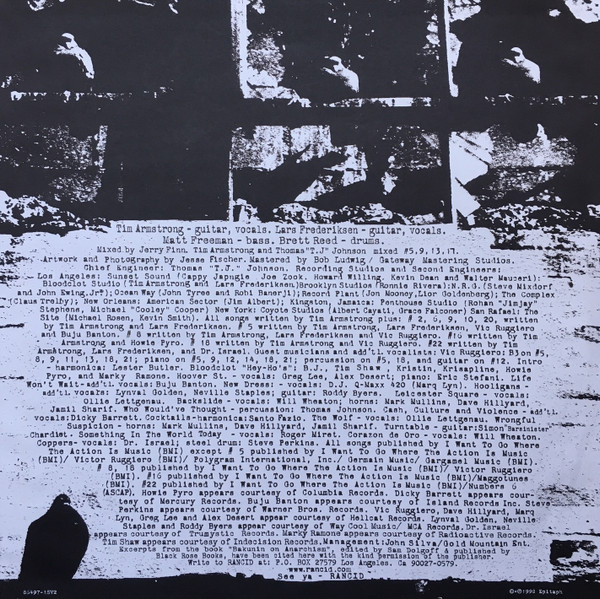 Tim Armstrong - guitar, vocals. Lars Frederiksen - guitar, vocals.
Matt Freeman - bass. Brett Reed - drums.
Mixed by Jerry Finn. Tim Armstrong and Thomas "T.J" Johnson mixed #5,9,13,17.
Artwork and Photography by Jesse Fischer. Mastered by Bob Ludwig/ Gateway Mastering Studios.
Chief Engineer: Thomas "T.J." Johnson. Recording Studios and Second Engineers:
Los Angeles: Sunset Sound (Cappy Japngie Joe Zook, Howard Willing, Kevin Dean and Walter Mauceri):
Bloodclot Studio (Tim Armstrong and Lars Frederiksen) Brooklyn Studios (Ronnie Rivera): N.R.G. (Steve Mixdorf
and John Ewing, Jr): Ocean Way (John Tyree and Robi Banerji); Record Plant (Jon Mooney, Llor Goldenberg); The Complex
(Claus Trelby); New Orleans: American Sector (Jim Albert); Kingston, Jamaica: Penthouse Studio (Rohan "Jimjay"
Stephens, Michael "Cooley" Cooper) New York: Coyote Studios (Albert Cayati, Grace Falconer) San Rafael: The
Site (Michael Rosen, Kevin Smith). All songs written by Tim Armstrong plus: # 2, 6, 9, 10, 20, written
by Tim Armstrong and Lars Frederiksen. # 5 written by Tim Armstrong, Lars Frederiksen, Vic Ruggiero
and Buju Banton. # 8 written by Tim Armstrong, Lars Frederiksen and Vic Ruggiero. #16 written by Tim
Armstrong and Howie Pyro. # 18 written by Tim Armstrong and Vic Ruggiero. #22 written by Tim
Armstrong, Lars Frederiksen, and Dr. Israel. Guest musicians and add'tl. vocalists: Vic Ruggiero: B3 on #5,
8, 9, 11, 13, 18, 21; piano on #5, 9, 12, 14, 18, 21; percussion on #5, 18, and guitar on #12. Intro
- harmonica: Lester Butler. Bloodclot "Hey-Ho's": B.J., Tim Shaw, Kristin, Krisapline, Howie
Pyro, and Marky Ramone. Hoover St. - vocals: Greg Lee, Alex Desert; piano: Eric Stefani. Life
Won't Wait- add'tl. vocals: Buju Banton. New Dress: - vocals: D.J. Q-Maxx 420 (Marq Lyn). Hooligans -
add'tl. vocals: Lynval Golden, Neville Staples; guitar: Roddy Byers. Leicester Square - vocals:
Ollie Lettgenau. Backslide - vocals: Will Wheaton; horns: Mark Mullins, Dave Hillyard,
Jamil Sharif. Who Would've Thought - percussion: Thomas Johnson. Cash, Culture and Violence - add'tl.
vocals: Dicky Barrett. Cocktails - harmonica: Santo Fazio. The Wolf - vocals: Ollie Lettgenau. Wrongful
Suspicion - horns: Mark Mullins, Dave Hillyard, Jamil Sharif. Turntable - guitar: Simon
Chardiet. Something In The World Today - vocals: Roger Miret. Corazon de Oro - vocals: Will Wheaton.
Coppers- vocals: Dr. Israel; steel drum: Steve Perkins. All songs published by I Want To Go Where
The Action Is Music (BMI) except # 5 published by I Want To Go Where The Action Is Music
(BMI)/ Victor Ruggiero (BMI)/ Polygram International, Inc./ Germain Music/ Gargamel Music (BMI).
# 8, 18 published by I Want To Go Where The Action Is Music (BMI)/ Victor Ruggiero
(BMI). #16 published by I Want To Go Where The Action Is Music (BMI)/Maggotunes
(BMI). #22 published by I Want To Go Where The Action Is Music (BMI)/Numbers &
(ASCAP). Howie Pyro appears courtesy of Columbia Records. Dicky Barrett appears cour-
tesy of Mercury Records. Buju Banton appears courtesy of Island Records Inc. Steve
Perkins appears courtesy of Warner Bros. Records. Vic Ruggiero, Dave Hillyard, Marq
Lyn, Greg Lee and Alex Desert appear courtesy of Hellcat Records. Lynval Golden, Neville
Staples and Roddy Byers appear courtesy of Way Cool Music/ MCA Records. Dr. Israel
appears courtesy of Trumystic Records. Marky Ramone appears courtesy of Radioactive Records.
Tim Shaw appears courtesy of Indecision Records. Management: John Silva/Gold Mountain Ent.
Excerpts from the book "Bakunin on Anarchism", edited by Sam Dolgoff & published by
Black Rose Books, have been cited here with the kind permission of the publisher.
Write to RANCID at: P.O. BOX 27579 Los Angeles, Ca 90027-0579.
www.rancid.com
see ya - RANCID
86497-1SV2
©+℗1998 Epitaph